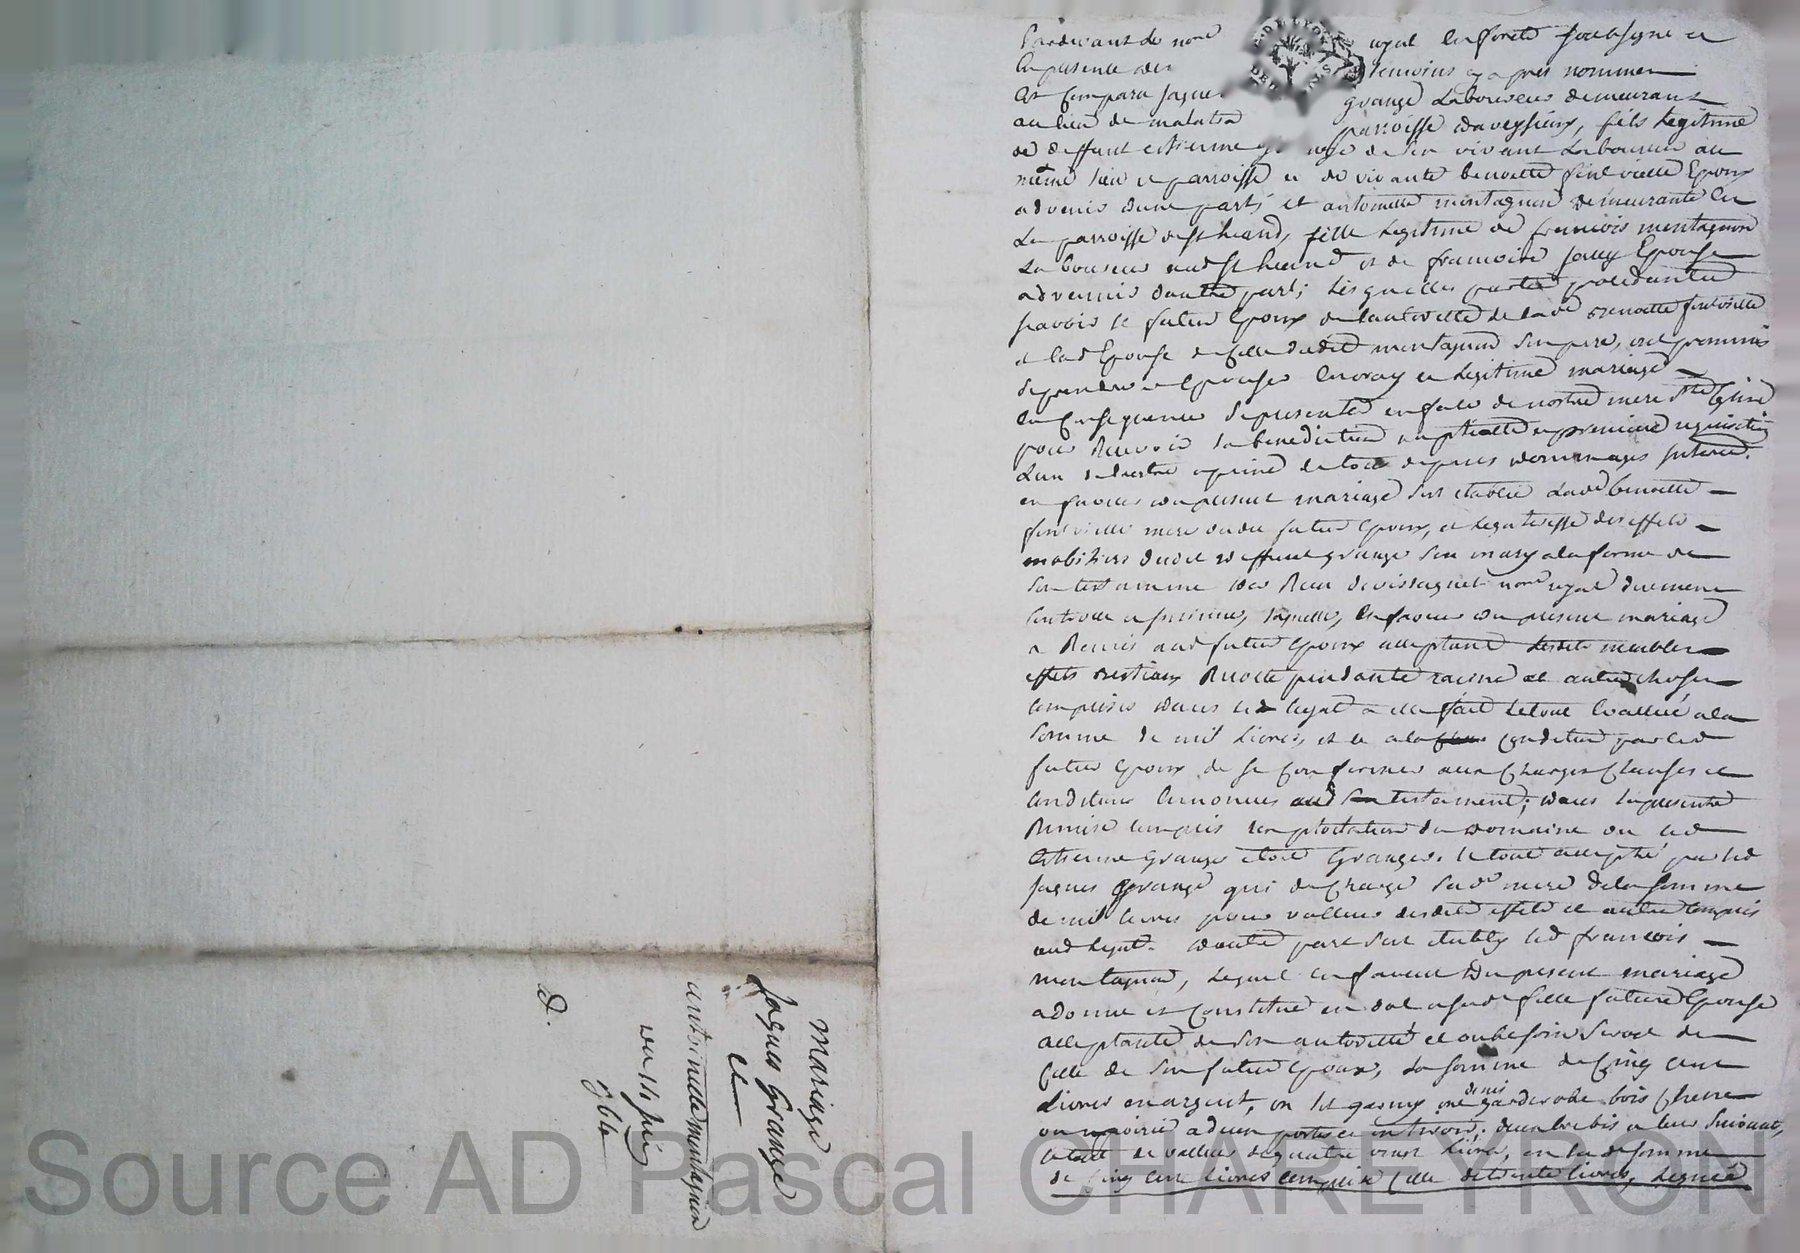 Pardevant le nore royal en forest soubsigné et
en presence des temoins cy apres nommes
est comparu Jaques grange laboureur demeurant
au lieu de malatra parroisse daveysieux, fils legitime
de deffunt estienne grange de son vivant laboureur au
même lieu et parroisse et de vivante benoitte Epoux
advenir dune part; et antoinette montagnon demeurante en
la parroisse de st heand, fille legitime de francois montagnon
laboureur aud st heand et de francoise Epouse
advenir dautre part; lesquelles parties procedantes
scavoir le futur Epoux de lautorité de lade Benoitte
et lad Epouse de celle dudit montagnon son pere, ont promis
se prendre et Epouser en vray et legitime mariage
en consequence se presenter en face de nostre mere ste Eglise
pour Recevoir la benediction nuptialle a premiere requisition
lun de lautre a peine de tous depens dommages interets.
en faveur du present mariage sest etablie lade benoitte
mere dudit futur Epoux, et legataresse des effets
mobiliers dudit deffunt grange son mary a la forme de
son testament Recu nore royal duement
controllé et insinué, laquelle, en faveur du present mariage
a Remis aud futur Epoux acceptant lesdits meubles
effets bestiaux Recolte pendante racine et autres choses
comprises dans led legat a elle fait le tout évallué a la
somme de mil livres, et ce a la condition par led
futur Epoux de se conformer aux charges clauses et
conditions enoncees aud testament; dans la presente
Remise compris lexploitation du domaine ou led
estienne Grange etoit Granger. le tout accepté par led
Jaques Grange qui decharge sade mere de la somme
de mil livres pour valleur desdits effets et autres compris
aud legat. dautre part sest etably led francois
montagnon, lequel en faveur du present mariage
a donné et constitué en dot a sade fille future Epouse
acceptante de son autorité et au besoin seroit de
celle de son futur Epoux, la somme de cinq cent
livres en argent, un lit garny une demie garderobe bois chene
ou noirier a deux portes et un tiroir; deux brebis et leur suivant,
le tout de valleur de quatre vingt livres, en lade somme
de cinq cent livres comprise celle de trente livres, leguée
Mariage
Jaques Grange
et
antoinette montagnon
du 11 juin
D.
Source AD Pascal CHAREYRON